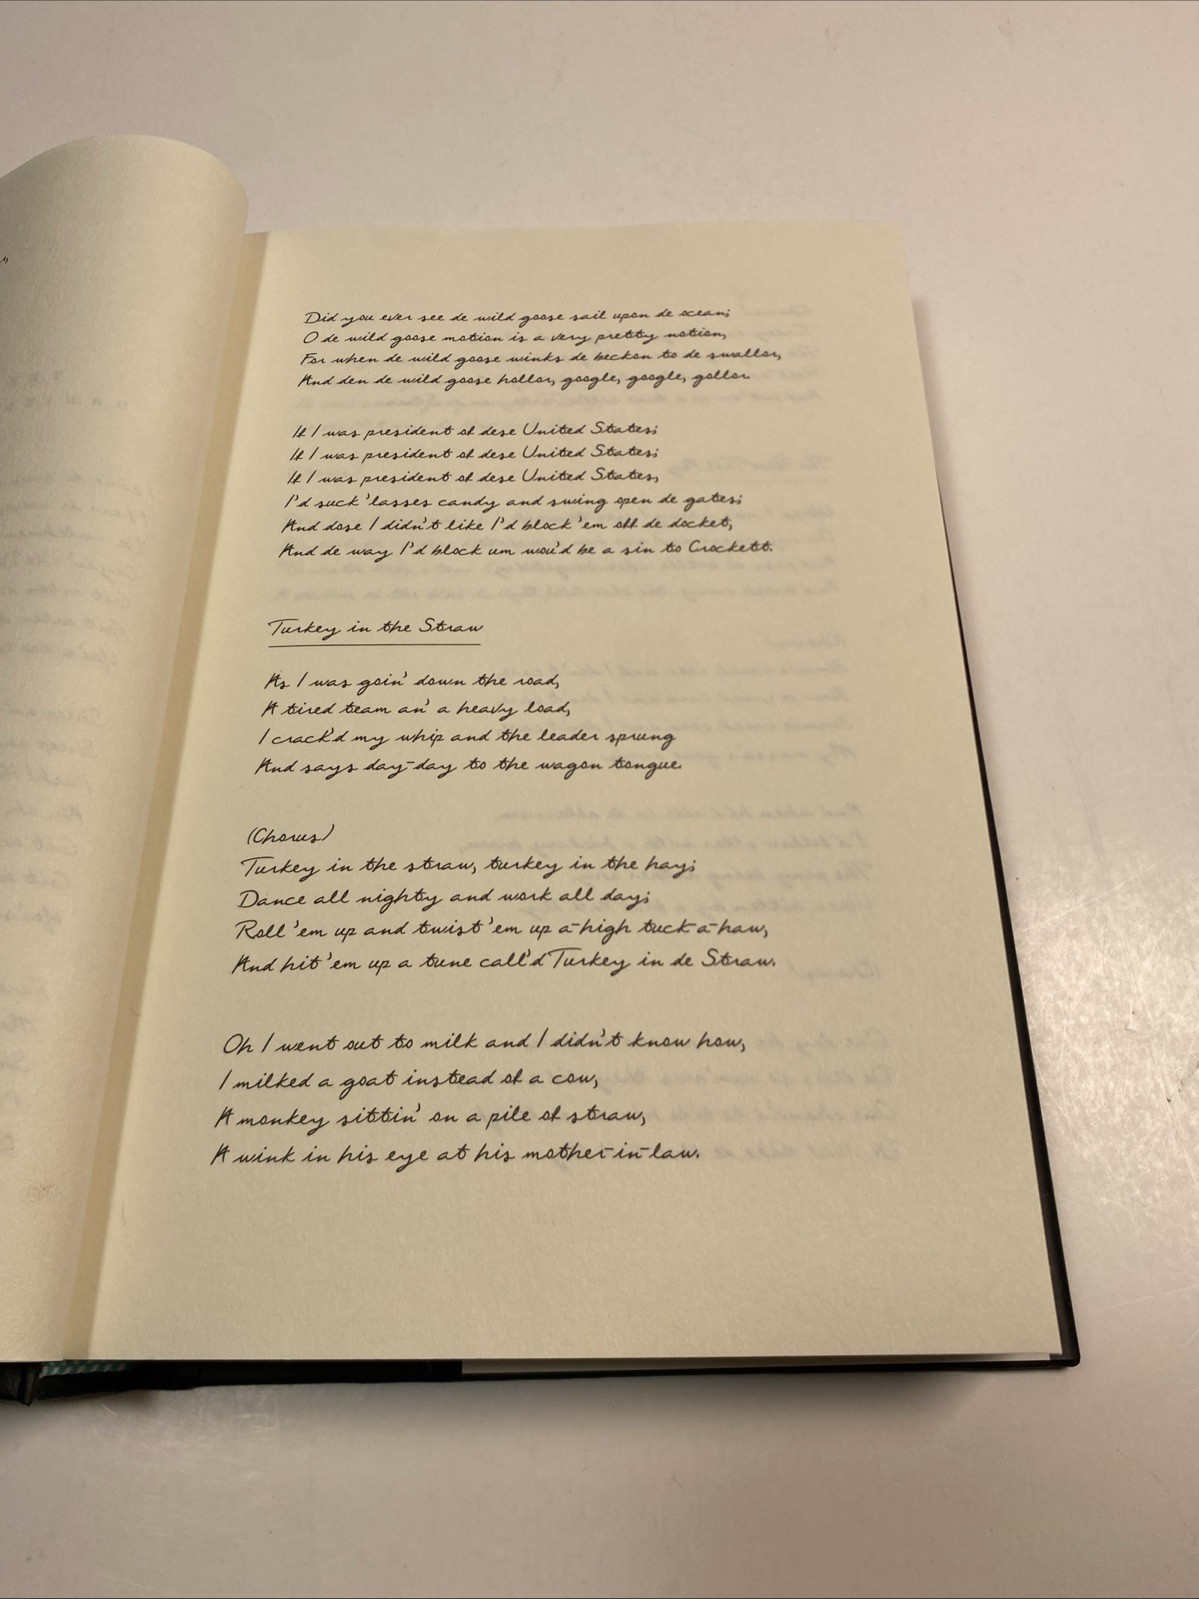 Did you ever see de wild goose sail upon de ocean;
O de wild goose motion is a very pretty notion,
For when de wild goose winks de beckon to de swallor,
And den de wild goose hollor, google, google, gollor.
If I was president of dese United States;
If I was president of dese United States;
If I was president of dese United States,
I'd suck 'lasses candy and swing open de gates;
And dose I didn't like I'd block 'em off de docket,
And de way I'd block um wou'd be a sin to Crockett.
Turkey in the Straw
As I was goin' down the road,
A tired team an' a heavy load,
I crack'd my whip and the leader sprung
And says day-day to the wagon tongue.
(Chorus)
Turkey in the straw, turkey in the hay;
Dance all nighty and work all day;
Roll 'em up and twist 'em up a-high tuck-a-haw,
And hit 'em up a tune call'd Turkey in de Straw.
Oh I went out to milk and I didn't know how,
I milked a goat instead of a cow,
A monkey sittin' on a pile of straw,
A wink in his eye at his mother-in-law.